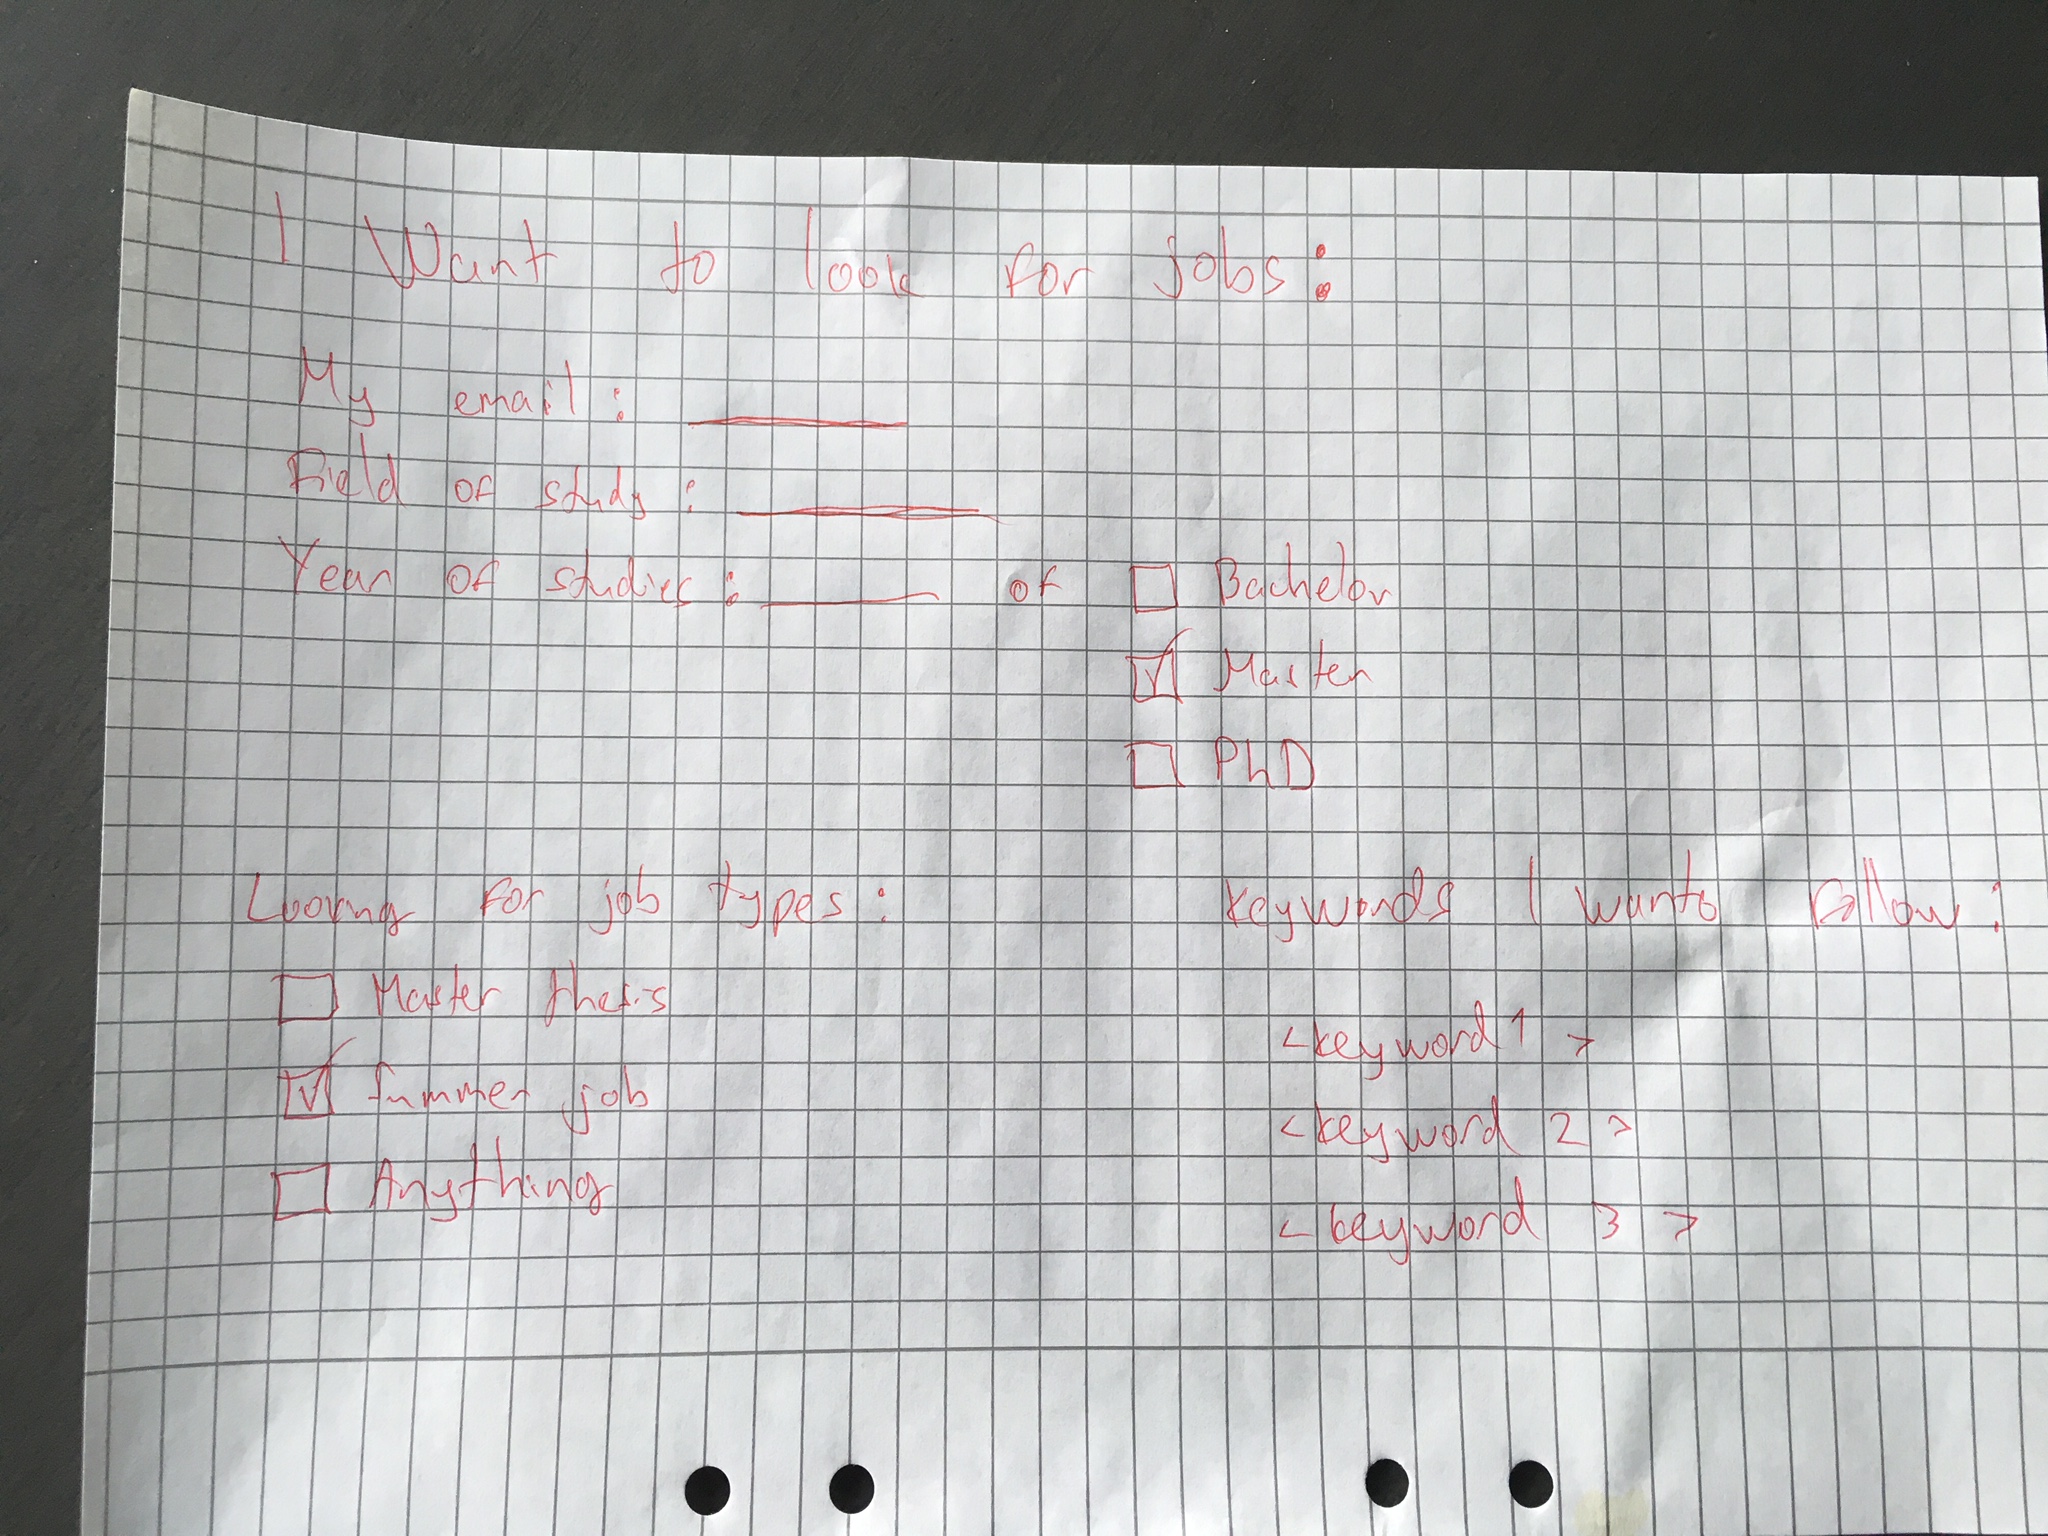 I Want to look for jobs:
My email:
Field of study:
Year of studies: of Bachelor
Master
PhD
Looking for job types:
Master thesis
Summer job
Anything
Keywords I want to follow:
<keyword 1>
<keyword 2>
<keyword 3>